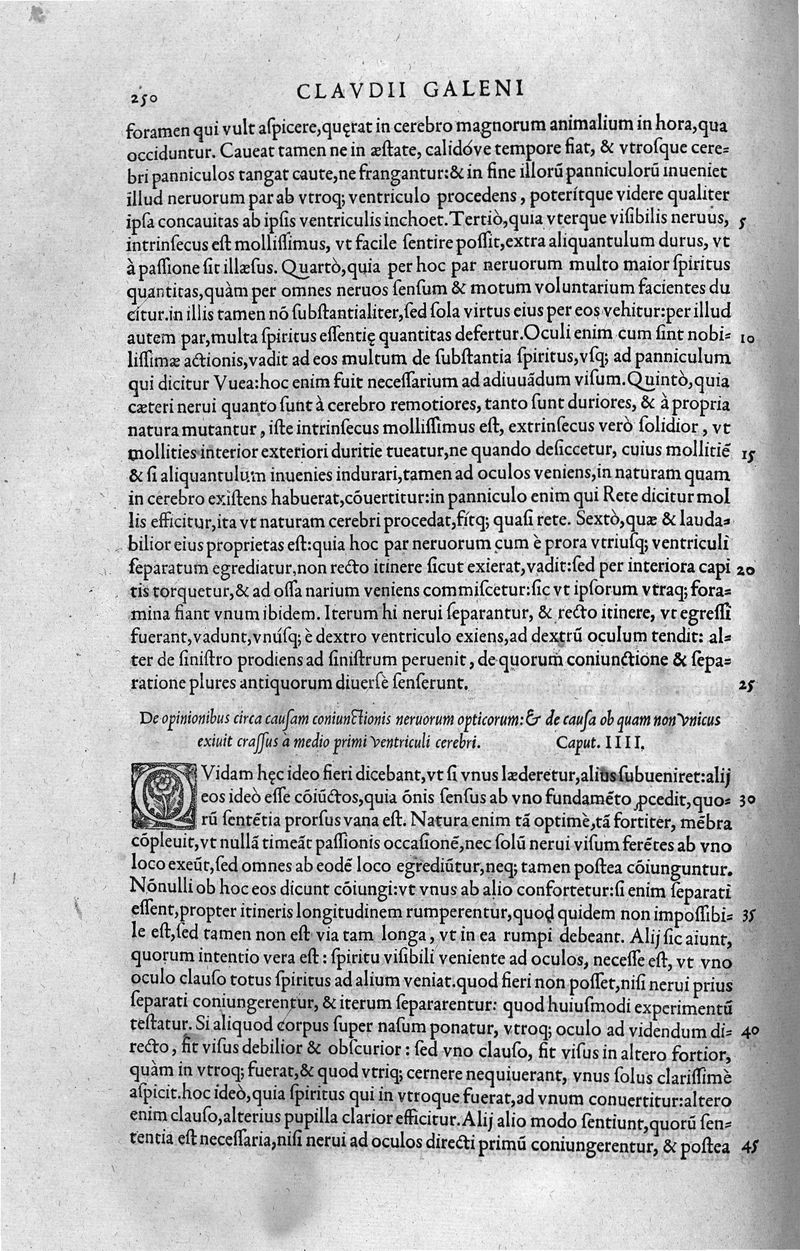 250 CLAVDII GALENI
foramen qui vult aſpicere,quęrat in cerebro magnorum animalium in hora,qua
occiduntur. Caueat tamen ne in æſtate, calidóve tempore fiat, & vtroſque cere⸗
bri panniculos tangat caute,ne frangantur:& in fine illorũ panniculorũ inueniet
illud neruorum par ab vtroq; ventriculo procedens, poterítque videre qualiter
ipſa concauitas ab ipſis ventriculis inchoet. Tertiò,quia vterque viſibilis neruus, 5
intrinſecus eſt molliſſimus, vt facile ſentire poſſit,extra aliquantulum durus, vt
à paſſione ſit illæſus. Quartò,quia per hoc par neruorum multo maior ſpiritus
quantitas,quàm per omnes neruos ſenſum & motum voluntarium facientes du
cítur.in illis tamen nõ ſubſtantialiter,ſed ſola virtus eius per eos vehitur:per illud
autem par,multa ſpiritus eſſentię quantitas defertur.Oculi enim cum ſint nobi⸗ 10
liſſimæ actionis,vadit ad eos multum de ſubſtantia ſpiritus,vſq; ad panniculum
qui dicitur Vuea:hoc enim fuit neceſſarium ad adiuuãdum viſum.Quintò,quia
cæteri nerui quanto ſunt à cerebro remotiores, tanto ſunt duriores, & à propria
natura mutantur, iſte intrinſecus molliſſimus eſt, extrinſecus verò ſolidior, vt
mollities interior exteriori duritie tueatur,ne quando deſiccetur, cuius mollitiẽ 15
& ſi aliquantulum inuenies indurari,tamen ad oculos veniens,in naturam quam
in cerebro exiſtens habuerat,cõuertitur:in panniculo enim qui Rete dicitur mol
lis efficitur,ita vt naturam cerebri procedat,fítq; quaſi rete. Sextò,quæ & lauda⸗
bilior eius proprietas eſt:quia hoc par neruorum cum è prora vtriuſq; ventriculi
ſeparatum egrediatur,non recto itinere ſicut exierat,vadit:ſed per interiora capi 20
tis torquetur,& ad oſſa narium veniens commiſcetur:ſic vt ipſorum vtraq; fora⸗
mina fiant vnum ibidem. Iterum hi nerui ſeparantur, & recto itinere, vt egreſſi
fuerant,vadunt,vnúſq; è dextro ventriculo exiens,ad dextrũ oculum tendit: al⸗
ter de ſiniſtro prodiens ad ſiniſtrum peruenit, de quorum coniunctione & ſepa⸗
ratione plures antiquorum diuerſe ſenſerunt. 25
De opinionibus circa cauſam coniunctionis neruorum opticorum:& de cauſa ob quam non vnicus
exiuit craſſus a medio primi ventriculi cerebri. Caput. IIII.
QVidam hęc ideo fieri dicebant,vt ſi vnus læderetur,alius ſubueniret:alij
eos ideò eſſe cõiũctos,quia õnis ſenſus ab vno fundamẽto ꝓcedit,quo⸗ 30
rũ ſentẽtia prorſus vana eſt. Natura enim tã optimè,tã fortiter, mẽbra
cõpleuit,vt nullã timeãt paſſionis occaſionẽ,nec ſolũ nerui viſum ferẽtes ab vno
loco exeũt,ſed omnes ab eodẽ loco egrediũtur,neq; tamen poſtea cõiunguntur.
Nõnulli ob hoc eos dicunt cõiungi:vt vnus ab alio confortetur:ſi enim ſeparati
eſſent,propter itineris longitudinem rumperentur,quod quidem non impoſſibi⸗ 35
le eſt,ſed tamen non eſt via tam longa, vt in ea rumpi debeant. Alij ſic aiunt,
quorum intentio vera eſt: ſpiritu viſibili veniente ad oculos, neceſſe eſt, vt vno
oculo clauſo totus ſpiritus ad alium veniat.quod fieri non poſſet,niſi nerui prius
ſeparati coniungerentur, & iterum ſepararentur: quod huiuſmodi experimentũ
teſtatur. Si aliquod corpus ſuper naſum ponatur, vtroq; oculo ad videndum di⸗ 40
recto, fit viſus debilior & obſcurior: ſed vno clauſo, fit viſus in altero fortior,
quàm in vtroq; fuerat,& quod vtriq; cernere nequiuerant, vnus ſolus clariſſimè
aſpicit.hoc ideò,quia ſpiritus qui in vtroque fuerat,ad vnum conuertitur:altero
enim clauſo,alterius pupilla clarior efficitur. Alij alio modo ſentiunt,quorũ ſen⸗
tentia eſt neceſſaria,niſi nerui ad oculos directi primũ coniungerentur, & poſtea 45